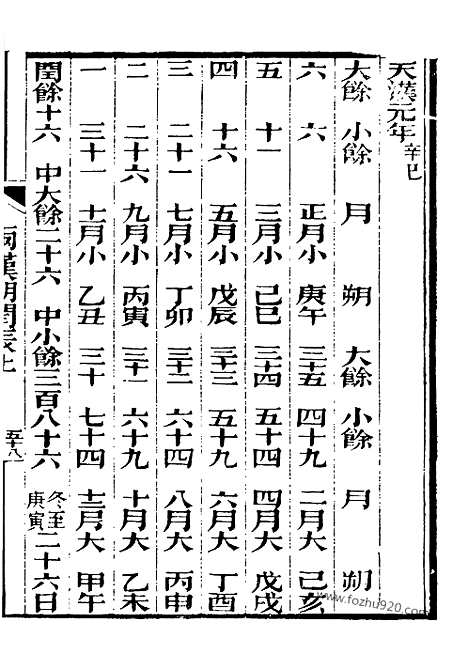 天漢元年辛巳
大餘 小餘 月 朔 大餘 小餘 月 朔
六 六 正月小 庚午 三十五 四十九 二月大 己亥
五 十一 三月小 己巳 三十四 五十四 四月大 戊戌
四 十六 五月小 戊辰 三十三 五十九 六月大 丁酉
三 二十一 七月小 丁卯 三十二 六十四 八月大 丙申
二 二十六 九月小 丙寅 三十一 六十九 十月大 乙未
一 三十一 十一月小 乙丑 三十 七十四 十二月大 甲午
閏餘十六 中大餘二十六 中小餘三百八十六 冬至庚寅二十六日
兩漢朔閏表七 五十八
www.fozhu920.com